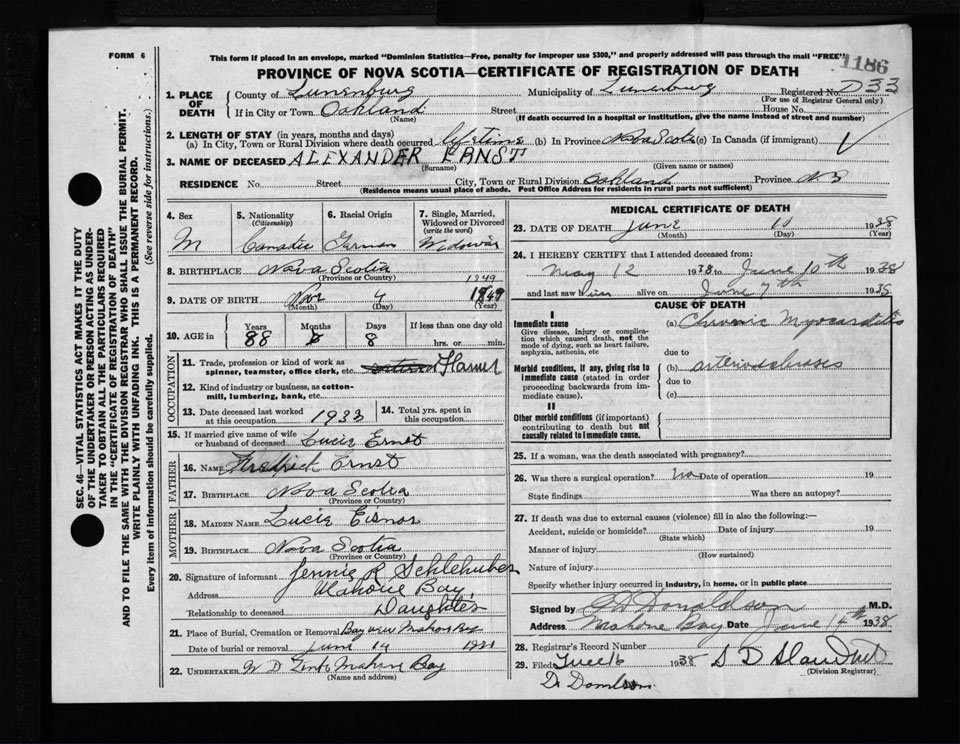 FORM 6
This form if placed in an envelope, marked "Dominion Statistics—Free, penalty for improper use $300," and properly addressed will pass through the mail "FREE"
1186
PROVINCE OF NOVA SCOTIA—CERTIFICATE OF REGISTRATION OF DEATH
1. PLACE OF DEATH
County of Lunenburg Municipality of Lunenburg Registered No. D 33
(For use of Registrar General only)
If in City or Town Oakland Street House No.
(Name) (If death occurred in a hospital or institution, give the name instead of street and number)
2. LENGTH OF STAY (in years, months and days)
(a) In City, Town or Rural Division where death occurred lifetime (b) In Province Nova Scotia (c) In Canada (if immigrant)
3. NAME OF DECEASED ALEXANDER ERNST
(Surname) (Given name or names)
RESIDENCE No. Street City, Town or Rural Division Oakland Province N.S
(Residence means usual place of abode. Post Office Address for residents in rural parts not sufficient)
4. Sex
M
5. Nationality
(Citizenship)
6. Racial Origin
German
7. Single, Married, Widowed or Divorced
(write the word)
8. BIRTHPLACE Nova Scotia
(Province or Country)
1849
9. DATE OF BIRTH Nov 4 1849
(Month) (Day) (Year)
10. AGE in Years Months Days If less than one day old
88 8 hrs. or min.
OCCUPATION
11. Trade, profession or kind of work as spinner, teamster, office clerk, etc. Farmer
12. Kind of industry or business, as cotton-mill, lumbering, bank, etc.
13. Date deceased last worked at this occupation 1933
14. Total yrs. spent in this occupation
15. If married give name of wife or husband of deceased Lucie Ernst
FATHER
16. NAME Fredrich Ernst
17. BIRTHPLACE Nova Scotia
(Province or Country)
MOTHER
18. MAIDEN NAME Lucie Eisnor
19. BIRTHPLACE Nova Scotia
(Province or Country)
20. Signature of informant Jennie R Schlehuber
Address Mahone Bay
Relationship to deceased Daughter
21. Place of Burial, Cremation or Removal Bayview Mahone Bay
Date of burial or removal June 14
22. UNDERTAKER Mahone Bay
(Name and address)
MEDICAL CERTIFICATE OF DEATH
23. DATE OF DEATH June 11 1938
(Month) (Day) (Year)
24. I HEREBY CERTIFY that I attended deceased from:
May 12 1938 to June 10th 1938
and last saw him alive on June 7th 1938
CAUSE OF DEATH
I
Immediate cause
Give disease, injury or complication which caused death, not the mode of dying, such as heart failure, asphyxia, asthenia, etc
(a) Chronic Myocarditis
due to
Morbid conditions, if any, giving rise to immediate cause (stated in order proceeding backwards from immediate cause).
(b) arteriosclerosis
due to
(c)
II
Other morbid conditions (if important) contributing to death but not causally related to immediate cause.
25. If a woman, was the death associated with pregnancy?
26. Was there a surgical operation? no Date of operation 19
State findings Was there an autopsy?
27. If death was due to external causes (violence) fill in also the following:—
Accident, suicide or homicide? Date of injury 19
(State which)
Manner of injury
(How sustained)
Nature of injury
Specify whether injury occurred in industry, in home, or in public place
Signed by Donaldson M.D.
Address Mahone Bay Date June 14th 1938
28. Registrar's Record Number
29. Filed June 16 1938 S D
(Division Registrar)
SEC. 46—VITAL STATISTICS ACT MAKES IT THE DUTY
OF THE UNDERTAKER OR PERSON ACTING AS UNDER-
TAKER TO OBTAIN ALL THE PARTICULARS REQUIRED
IN THE "CERTIFICATE OF REGISTRATION OF DEATH"
AND TO FILE THE SAME WITH THE DIVISION REGISTRAR WHO SHALL ISSUE THE BURIAL PERMIT.
WRITE PLAINLY WITH UNFADING INK. THIS IS A PERMANENT RECORD.
Every item of information should be carefully supplied. (See reverse side for instructions.)